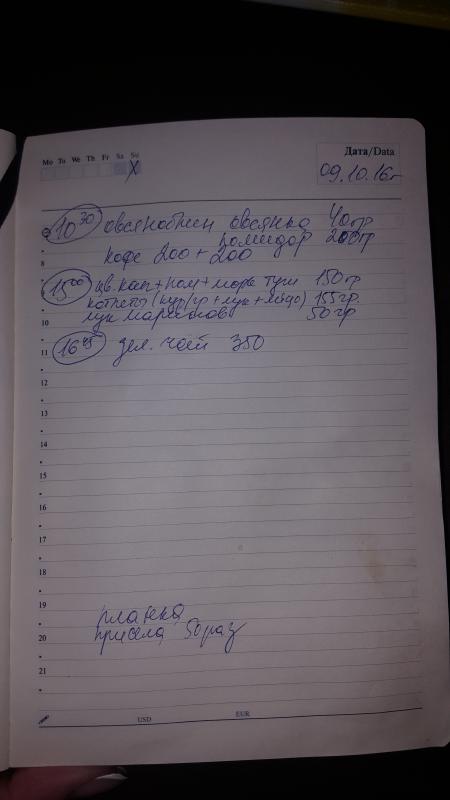 Mo Tu We Th Fr Sa Su
Дата/Data
09.10.16г
10 30 овсяноблин овсянка 40гр
помидор 200гр
8
кофе 200 + 200
15 00 цв. кап + пом + морк туш 150гр
котлеты (кур/гр + лук + яйцо) 155гр.
10
лук маринов 50гр
11
16 45 зел. чай 350
12
13
14
15
16
17
18
19
планка
20
присед 50раз
21
USD EUR